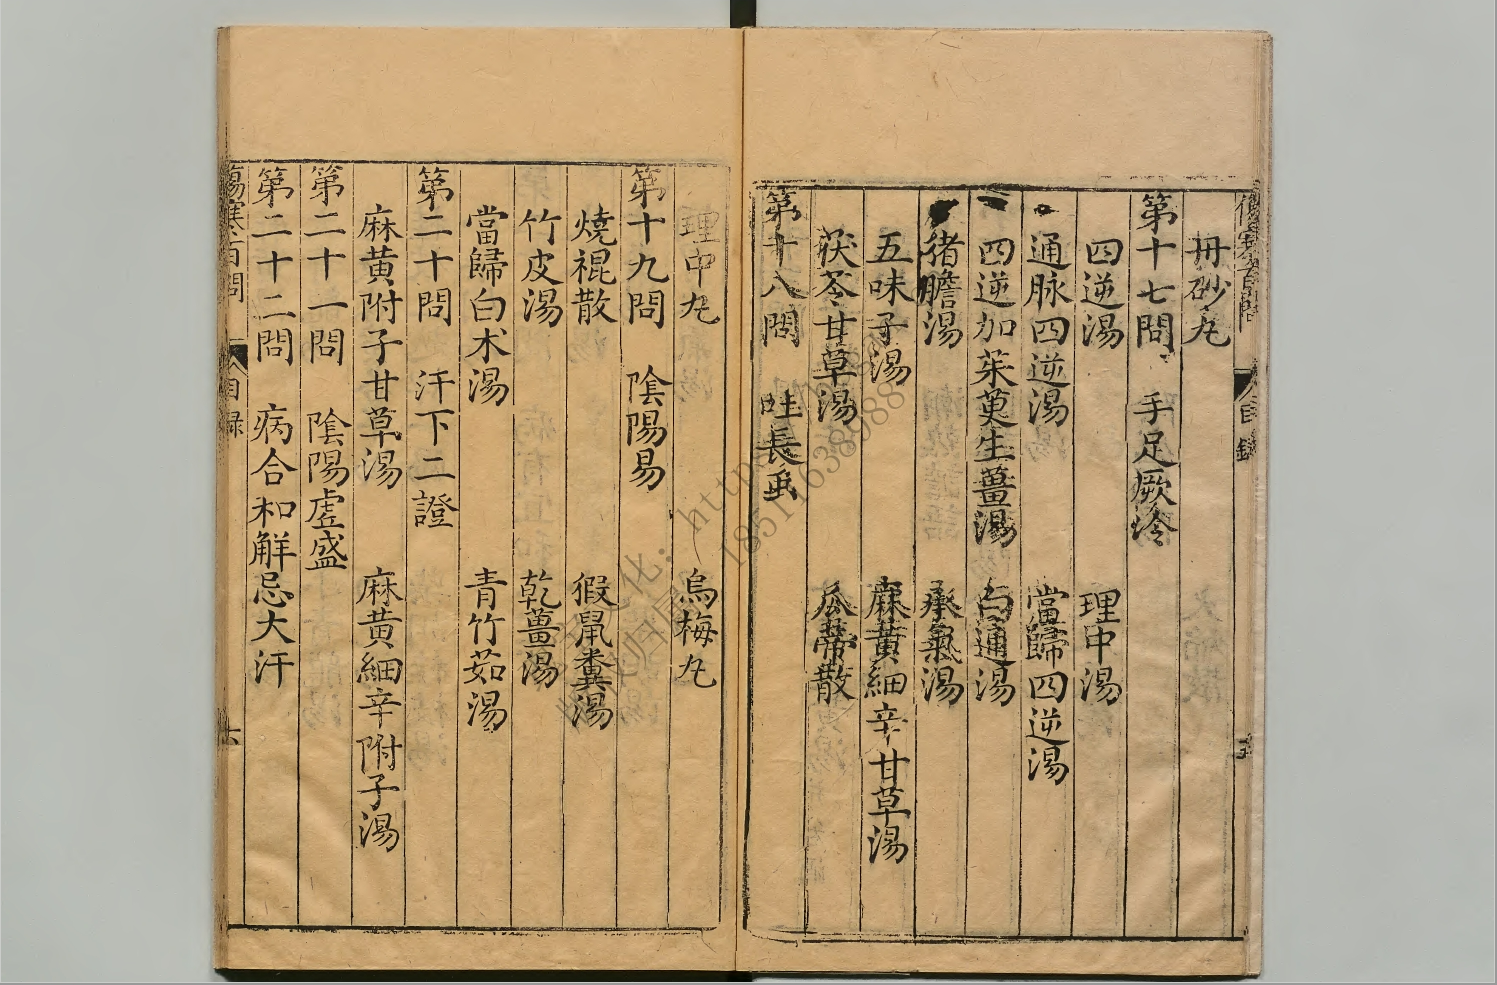 丹砂丸
第十七問 手足厥冷
四逆湯 理中湯
通脉四逆湯 當歸四逆湯
四逆加茱萸生薑湯 白通湯
猪膽湯 承氣湯
五味子湯 麻黃細辛甘草湯
茯苓甘草湯 瓜蒂散
第十八問
理中丸 烏梅丸
第十九問 陰陽易
燒裩散 猳鼠糞湯
竹皮湯 乾薑湯
當歸白术湯 青竹茹湯
第二十問 汗下二證
麻黃附子甘草湯 麻黃細辛附子湯
第二十一問 陰陽虛盛
第二十二問 病合和解忌大汗
傷寒百問 目録